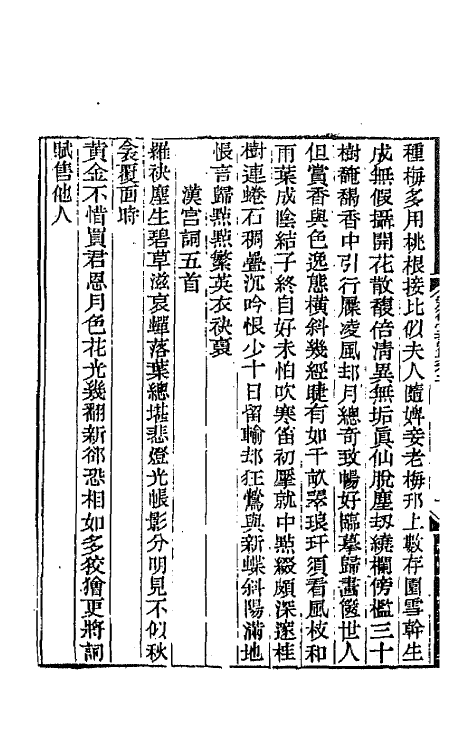 種梅多用桃根接比似夫人隨婢妾老梅邗上數存園雪幹生
成無假攝開花散馥倍清異無垢眞仙脫塵刼繞欄傍檻三十
樹馣馤香中引行屧凌風却月總奇致暢好臨摹歸畫篋世人
但賞香與色逸態橫斜幾經睫有如千畝翠琅玕須看風枝和
雨葉成陰結子終自好未怕吹寒笛初擪就中點綴頗深邃桂
樹連蜷石稠疊沉吟恨少十日留輸却狂鶯與新蝶斜陽滿地
悵言歸點點繁英衣袂裛
漢宮詞五首
羅袂塵生碧草滋哀蟬落葉總堪悲燈光帳影分明見不似秋
衾覆面時
黃金不惜買君恩月色花光幾翻新郤恐相如多狡獪更將詞
賦售他人